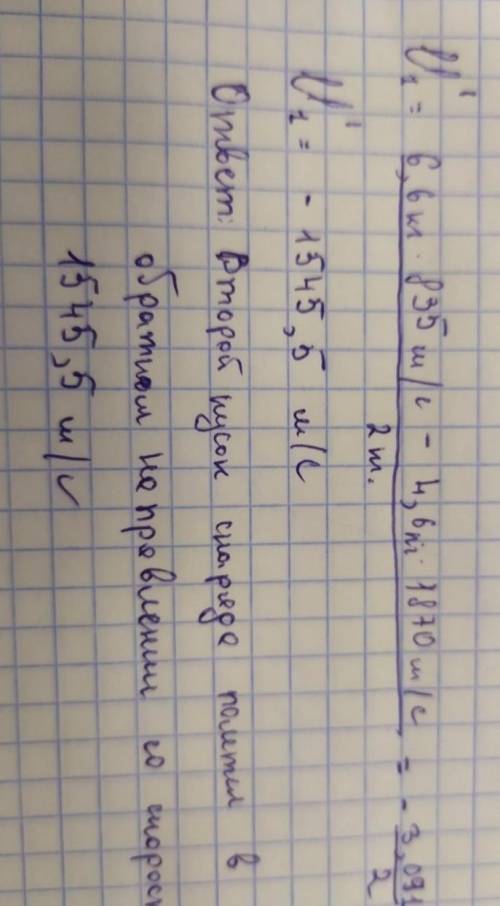 U₂' = 6,6 кг · 835 м/с - 4,6 кг · 1870 м/с = - 3,091
2 т. 2
U₂' = - 1545,5 м/с
Ответ: Второй кусок снаряда полетел в
обратном направлении со скорост
1545,5 м/с